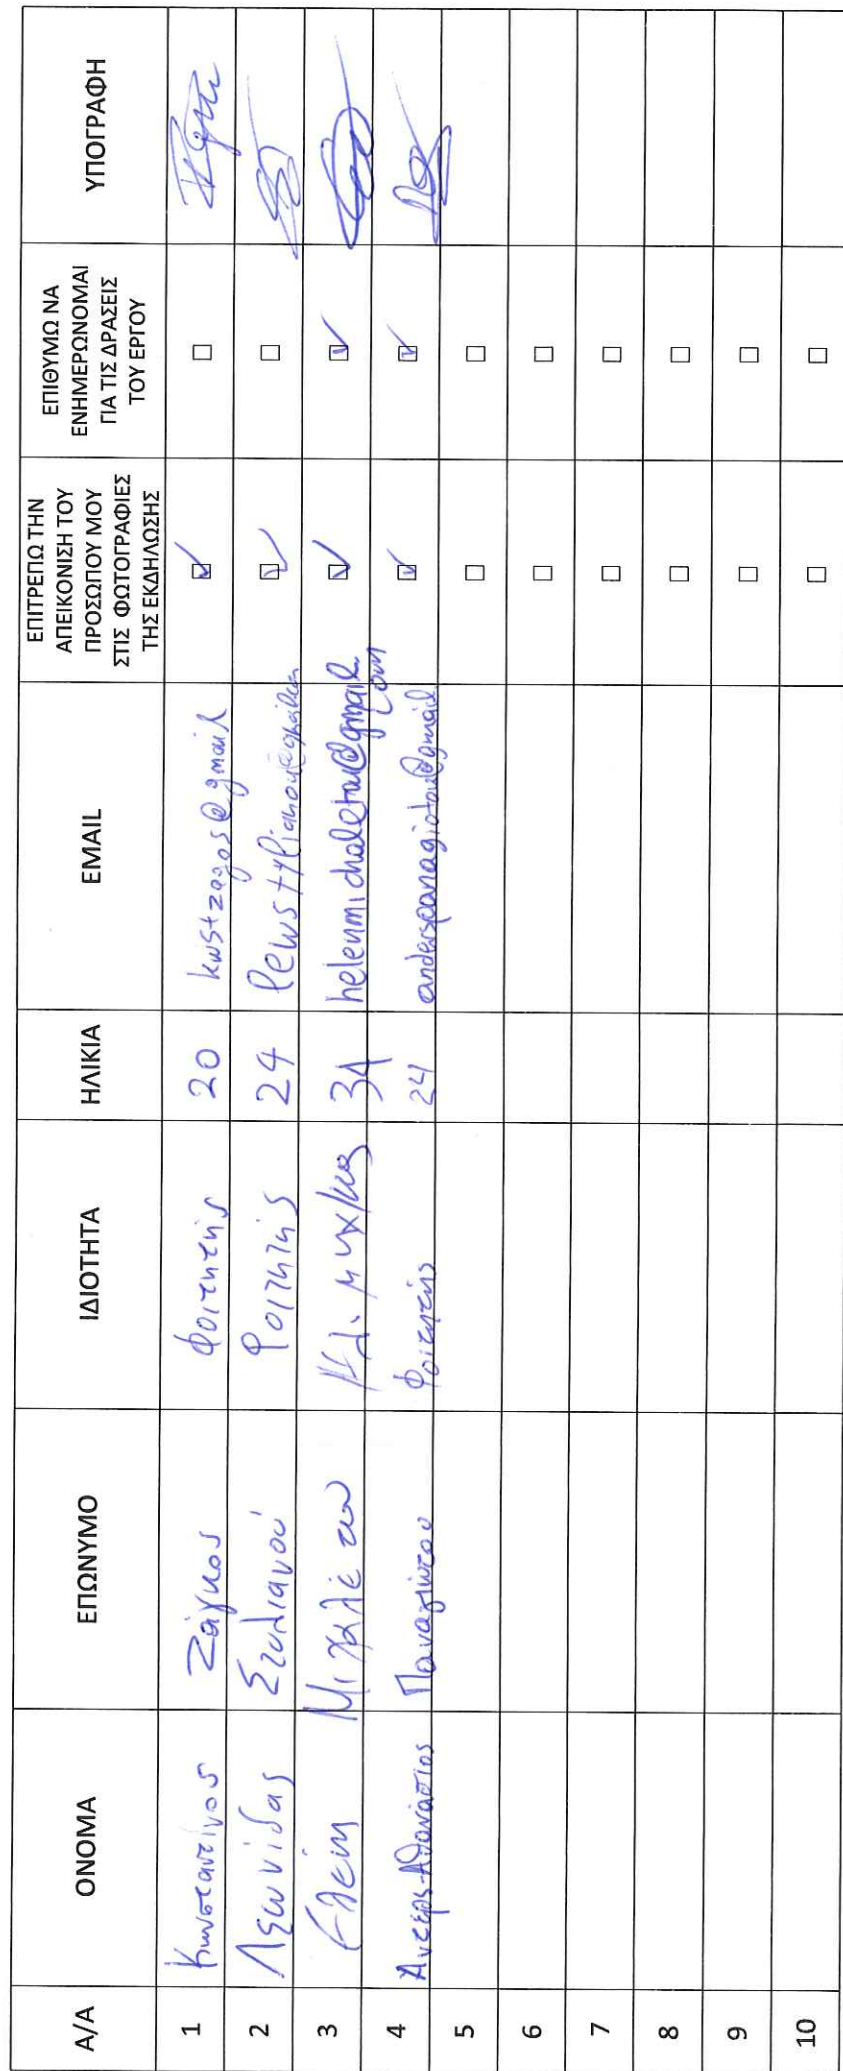 Α/Α ΟΝΟΜΑ ΕΠΩΝΥΜΟ ΙΔΙΟΤΗΤΑ ΗΛΙΚΙΑ EMAIL ΕΠΙΤΡΕΠΩ ΤΗΝ ΑΠΕΙΚΟΝΙΣΗ ΤΟΥ ΠΡΟΣΩΠΟΥ ΜΟΥ ΣΤΙΣ ΦΩΤΟΓΡΑΦΙΕΣ ΤΗΣ ΕΚΔΗΛΩΣΗΣ ΕΠΙΘΥΜΩ ΝΑ ΕΝΗΜΕΡΩΝΟΜΑΙ ΓΙΑ ΤΙΣ ΔΡΑΣΕΙΣ ΤΟΥ ΕΡΓΟΥ ΥΠΟΓΡΑΦΗ
1 Κωνσταντίνος Ζάγκος Φοιτητής 20 ☑ ☐
2 Λεωνίδας Στυλιανού Φοιτητής 24 ☑ ☐
3 Ελένη Μιχαλέτου 31 ☑ ☑
4 Αντερς-Αθανάσιος Παναγιώτου Φοιτητής 24 anderspanagiotou@gmail ☑ ☑
5 ☐ ☐
6 ☐ ☐
7 ☐ ☐
8 ☐ ☐
9 ☐ ☐
10 ☐ ☐